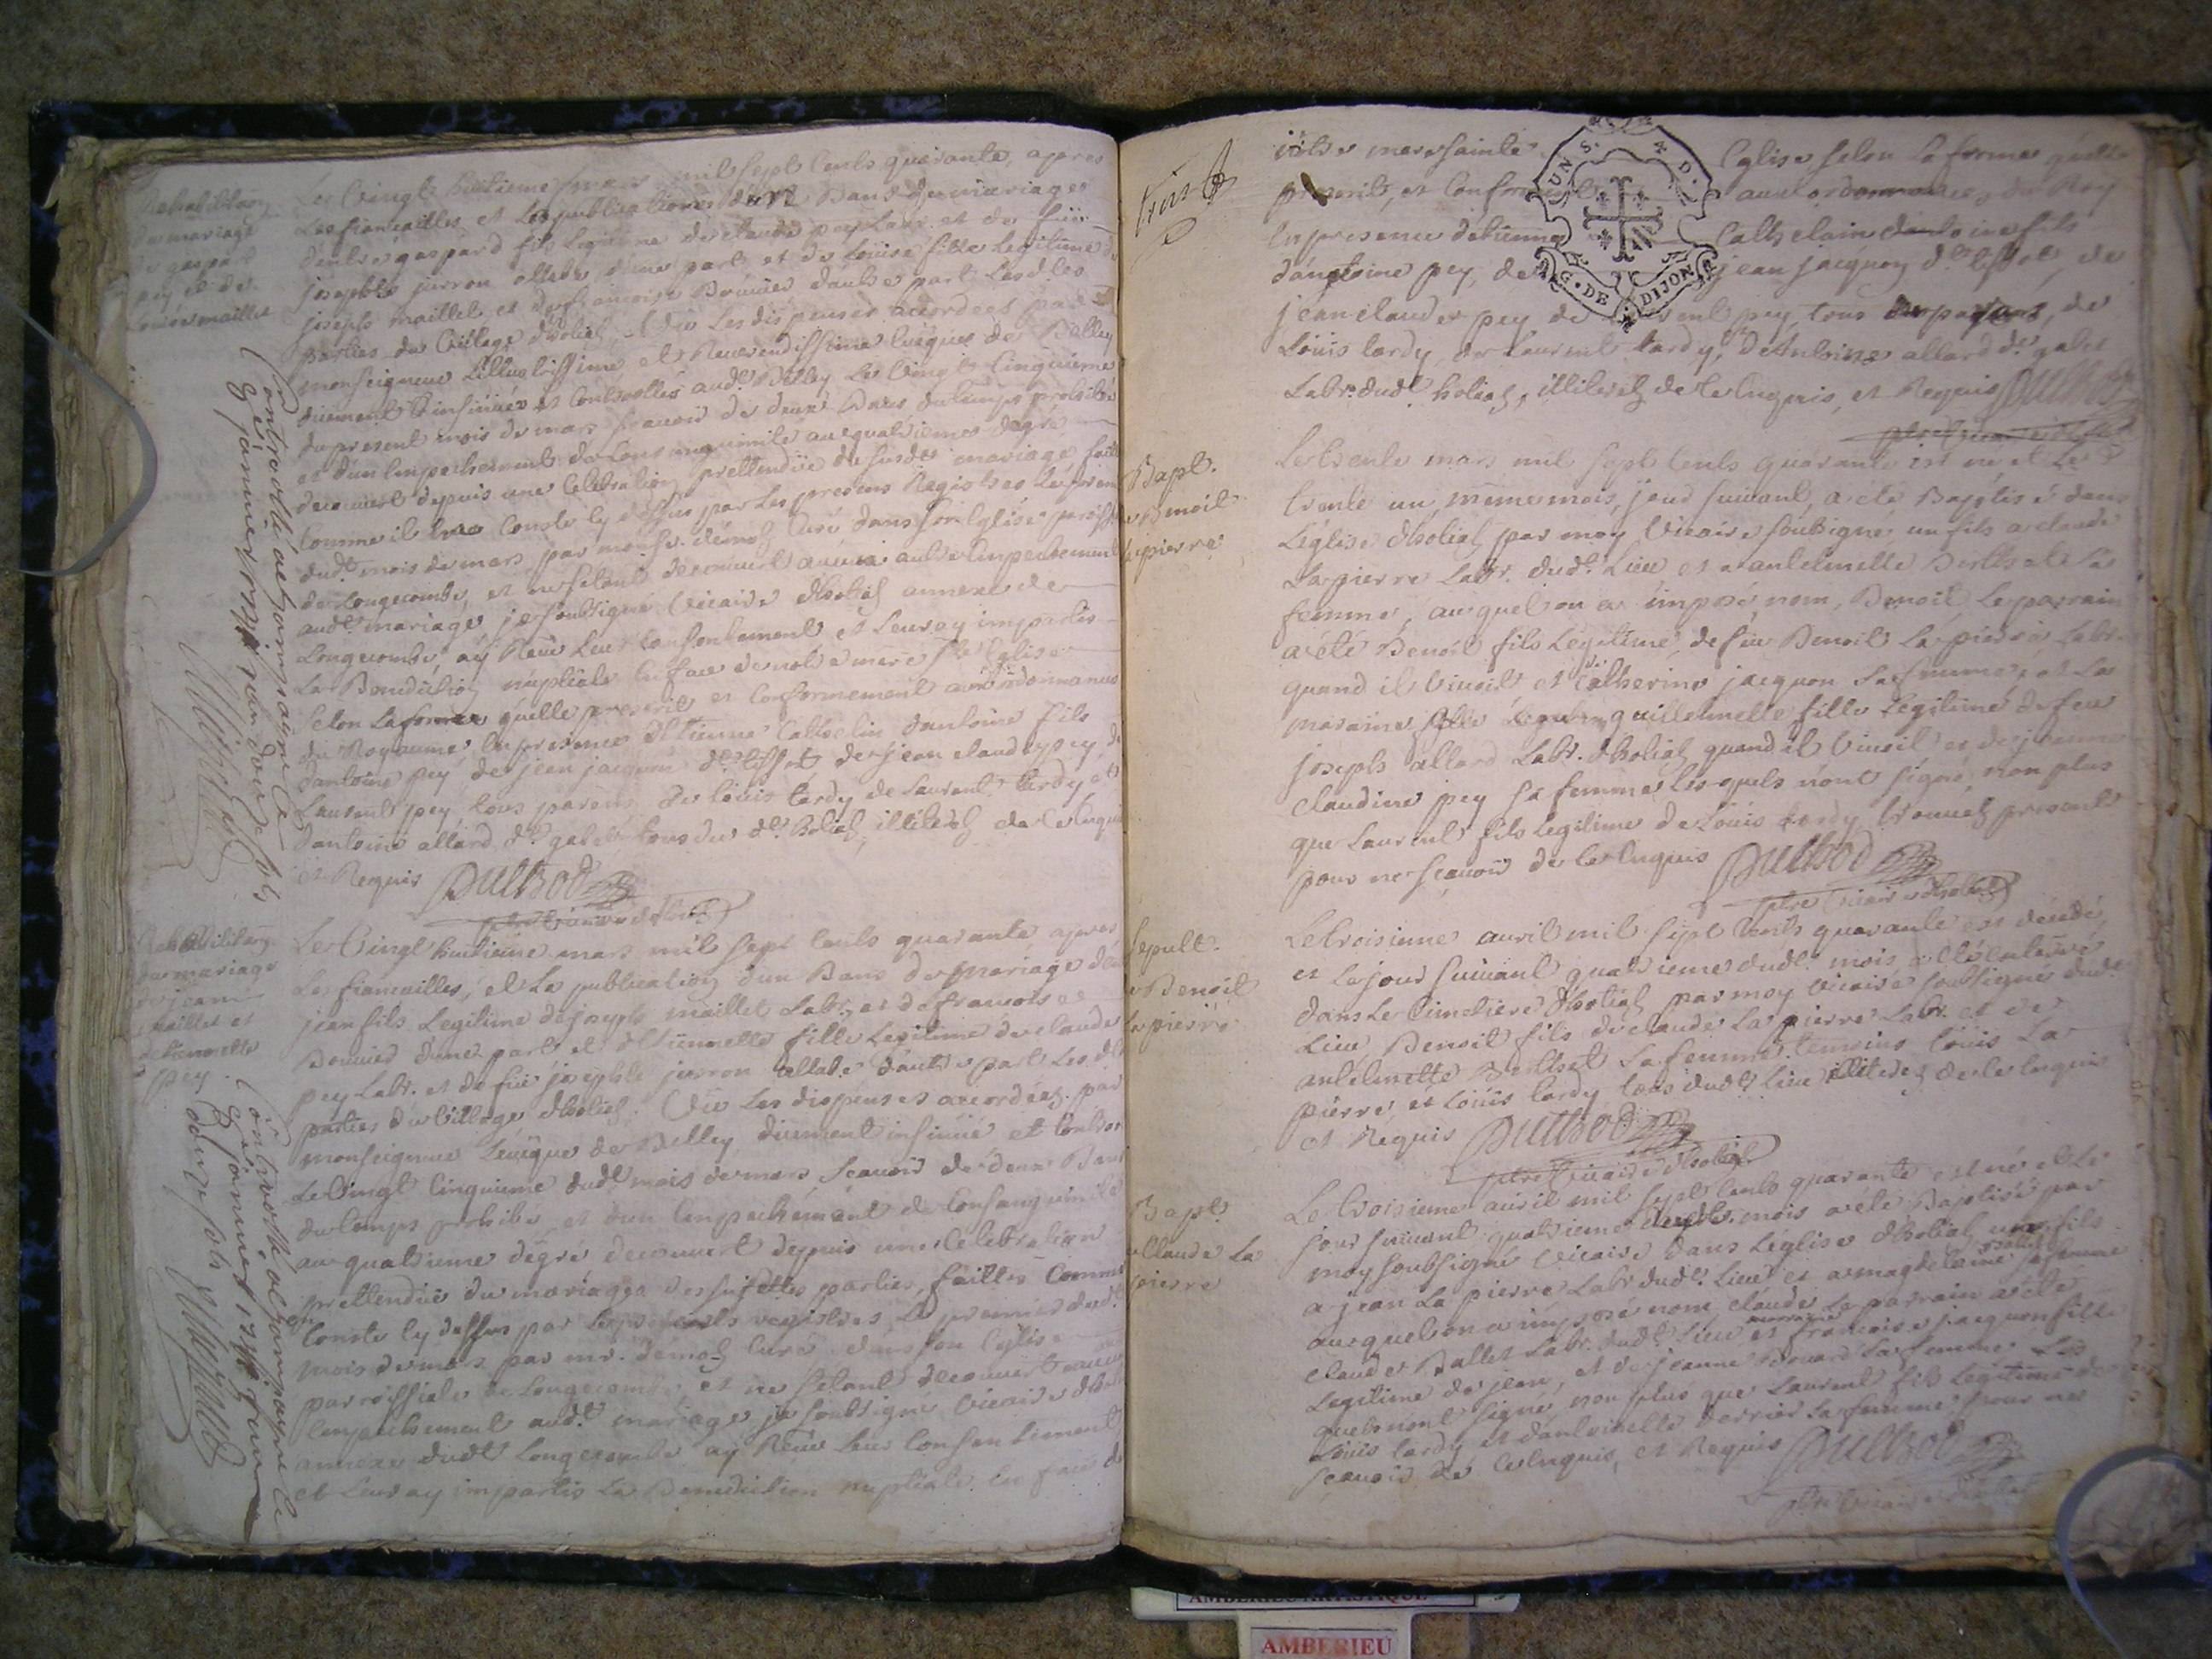 Rehabilitaõn
du mariage
de gaspard
pey et de
Louise maillet
Le Vingt huitieme mars mil sept Cents quarante, apres
Les fiancailles et Les publications d'un Bans de mariage
d'entre gaspard fils Legitime de claude pey Labr. et de füe
josephte jurron allabe d'une part, et de Louise fille Legitime de
joseph maillet et de francoise Bouvier d'autre part Les dtes
parties du Village d'hotiaz, Vû Les dispenses accordées par
monseigneur L'illustrissime et Reverendissime Eveque de Belley
düement insinüées et Controllés audt. Belley Le Vingt Cinquieme
du present mois de mars scavoir de deux Bans du temps prohibé
et d'un Empechement de Consanguinité au quatrieme degré
decouvert depuis une Celebration prettendüe du susdt mariage faite
Comme il Conste Cy dessus par Les presens Registres Le premier
dudt. mois de mars, par mr. demoz Curé dans son Eglise paroissiale
de Longecombe, et ne s'etant decouvert aucun autre Empechement
audt. mariage, je soubsigné Vicaire d'hotiaz annexe de
Longecombe, ay Reçu Leur Consentement et Leur ay impartis
La Benediction nuptiale En face de notre mere ste Eglise
selon La forme qu'elle prescrit et Conformement aux ordonnances
du Royaume, En presence d'Etienne Cathelin d'antoine fils
d'antoine pey de jean jacquon dt. de jean claude pey de
Laurent pey, tous parens de Loüis tardy de Laurent tardy et
d'antoine allard dt. galet tous du dt. hotiaz, illiterez de Ce Enquis
et Requis Dulhod
ptre Vicaire d'hotiaz
Controllé a Champagne Le
8e janvier 1741 pour douze sols
Rehabilitaõn
du mariage
de jean
maillet et
d'etiennette
pey
Le Vingt huitieme mars mil sept Cents quarante apres
Les fiancailles, et La publication d'un Bans de mariage d'entre
jean fils Legitime de joseph maillet Labr. et de francoise
Bouvier d'une part et d'Etiennette fille Legitime de claude
pey Labr. et de füe josephte jurron allabe d'autre part Les dtes
parties du Village d'hotiaz. Vû Les dispenses accordées par
monseigneur L'eveque de Belley, düement insinüé et Controllé
Le Vingt Cinquieme dudt. mois de mars, scavoir de deux Bans
du temps prohibé, et d'un Empechement de Consanguinité
au quatrieme degré decouvert depuis une Celebration
prettendüe du mariage des susdittes parties, faitte Comme
Conste Cy dessus par Les presents registres, Le premier dudt.
mois de mars par mr. demoz Curé dans son Eglise
parroissiale de Longecombe, et ne s'etant decouvert aucun
Empechement audt. mariage, je soubsigné Vicaire d'hotiaz
annexe dudt Longecombe ay Reçu Leur Consentement
et Leur ay impartis La Benediction nuptiale En face de
Controllé a Champagne Le
8e janvier 1741 pour
douze sols
notre mere sainte Eglise selon La forme qu'elle
prescrit, et Conformement aux ordonnances du Roy
En presence d'etienne Cathelain d'antoine fils
d'antoine pey, de jean jacquon dt. de
jean claude pey de Laurent pey, tous parens, de
Loüis tardy, de Laurent tardy, d'Antoine allard dt. galet
Labr. dudt. hotiaz, illiterez de Ce Enquis, et Requis Dulhod
ptre Vicaire
Bapt.
de Benoit
La pierre
Le trente mars mil sept Cents quarante est né et Le
trente un, même mois, jour suivant, a été Baptisé dans
L'église d'hotiaz par moy Vicaire soubsigné un fils a claude
La pierre Labr. dudt. Lieu et a antelmette Berthet sa
femme, auquel on a imposé nom, Benoit Le parrain
a été Benoit fils Legitime de feu Benoit La pierre Labr.
quand il Vivoit, et Catherine jacquon sa femme, et La
maraine guillelmette fille Legitime de feu
joseph allard Labr. d'hotiaz quand il Vivoit et de
claudine pey sa femme Lesquels n'ont signé, non plus
que Laurent fils Legitime de Loüis tardy trouvez presents
pour ne scavoir de Ce Enquis Dulhod
ptre Vicaire d'hotiaz
Sepult.
de Benoit
La pierre
Le troisieme avril mil sept Cents quarante est décédé,
et Le jour suivant quatrieme dudt. mois a été Enterré
dans Le Cimetiere d'hotiaz par moy Vicaire soubsigné dudt.
Lieu, Benoit fils de claude La pierre Labr. et de
antelmette Berthet sa femme. temoins Loüis La
pierre, et Loüis tardy tous dudt. Lieu illiterez de Ce Enquis
et Requis Dulhod
ptre Vicaire d'hotiaz
Bapt.
claude La
pierre
Le troisieme avril mil sept Cents quarante est né et Le
jour suivant quatrieme dudt. mois a été Baptisé par
moy soubsigné Vicaire dans L'eglise d'hotiaz un fils
a jean La pierre Labr. dudt. Lieu et a magdelaine sa femme
auquel on a imposé nom claude Le parrain a été
claude Ballet Labr. dudt. Lieu et marraine francoise jacquon fille
Legitime de jean, et de jeanne Bouard sa femme Les
quels n'ont signé, non plus que Laurent fils Legitime de
Loüis tardy et d'antoinette Berrier sa femme, pour ne
scavoir de Ce Enquis, et Requis Dulhod
ptre Vicaire d'hotiaz
G. DE DIJON
AMBERIEU ARTISTIQUE
AMBERIEU